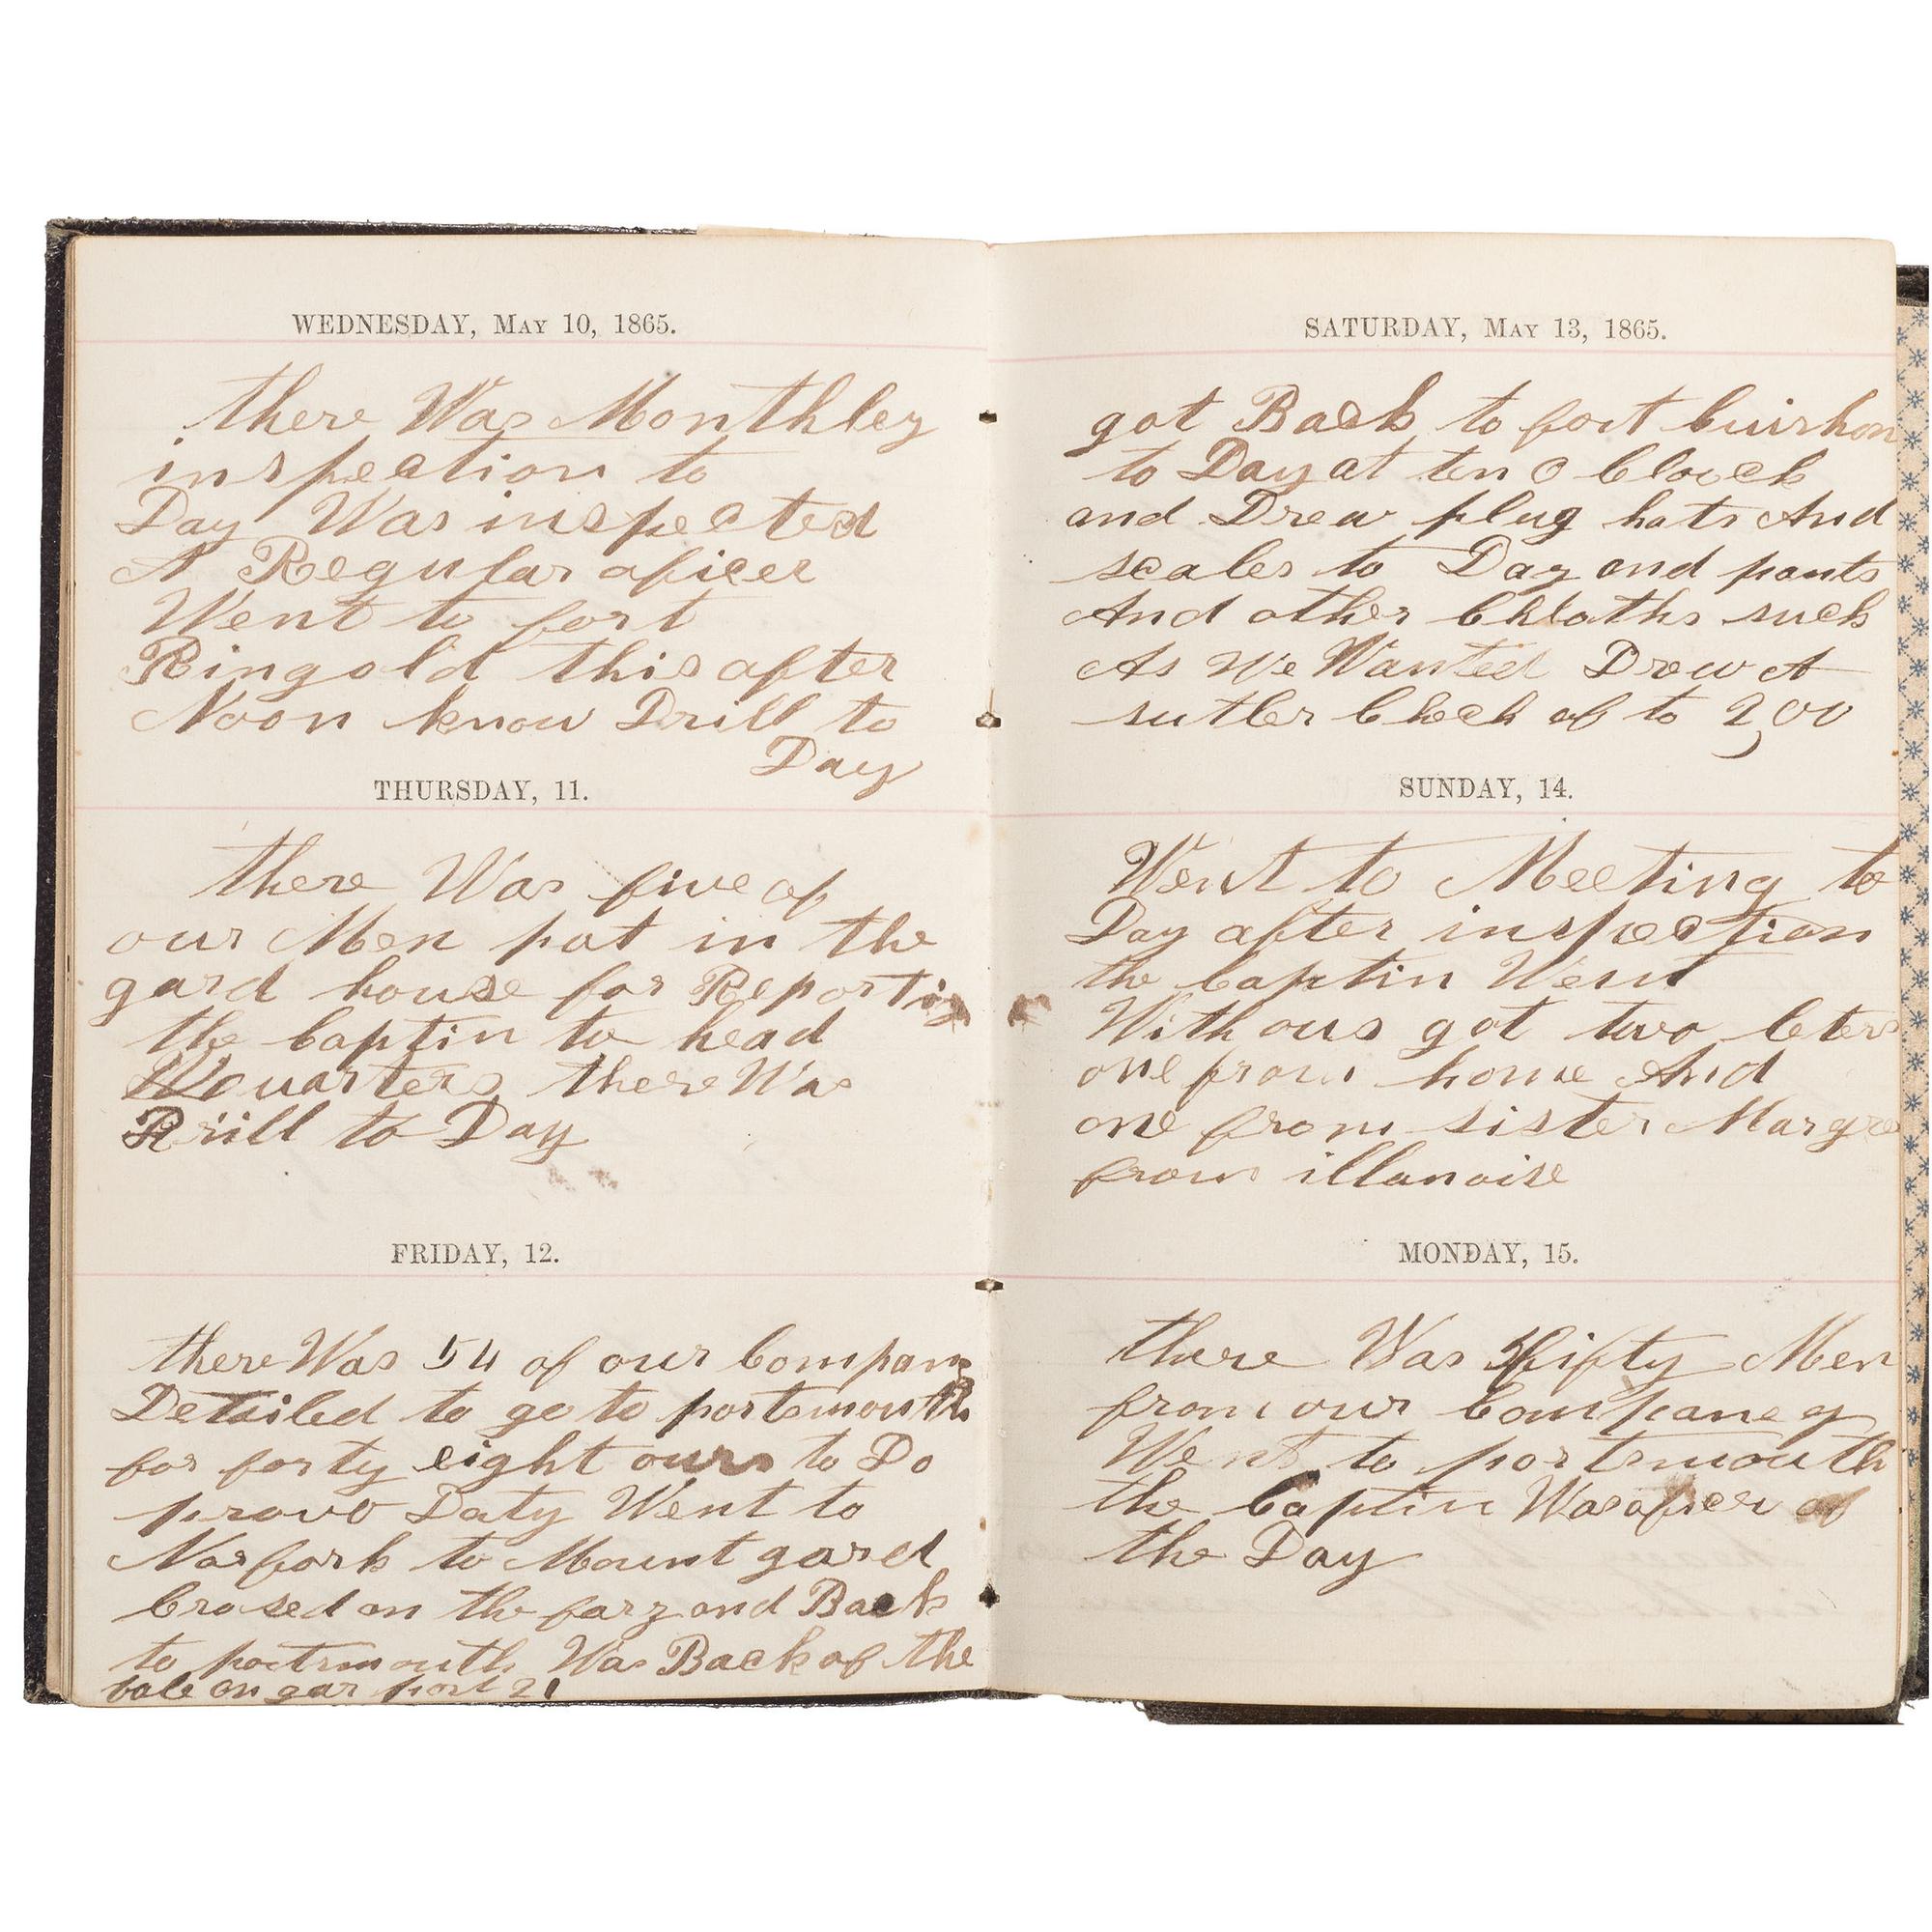 WEDNESDAY, MAY 10, 1865.
there Was Monthley
inspection to
Day Was inspected
A Regular oficer
Went to fort
Ringold this after
Noon know Drill to
Day
THURSDAY, 11.
there Was five of
our Men put in the
gard house for Reportig
the Captin to head
Quarters there Was
Drill to Day
FRIDAY, 12.
there Was 54 of our Company
Detailed to go to portsmouth
for forty eight ours to Do
provo Duty Went to
Norfork to Mount gard
Crosed on the fary and Back
to portsmouth Was Back of the
on gar post 21
SATURDAY, MAY 13, 1865.
got Back to fort
to Day at ten O Clock
and Drew plug hats And
scales to Day and pants
And other Chloths such
As We Wanted Drew A
sutler Check of to 2,00
SUNDAY, 14.
Went to Meeting to
Day after inspection
the Captin Went
With ous got two leters
one from home And
one from sister Margre
from illanoise
MONDAY, 15.
there Was fifty Men
from our Company
Went to portsmouth
the Captin Was oficer of
the Day